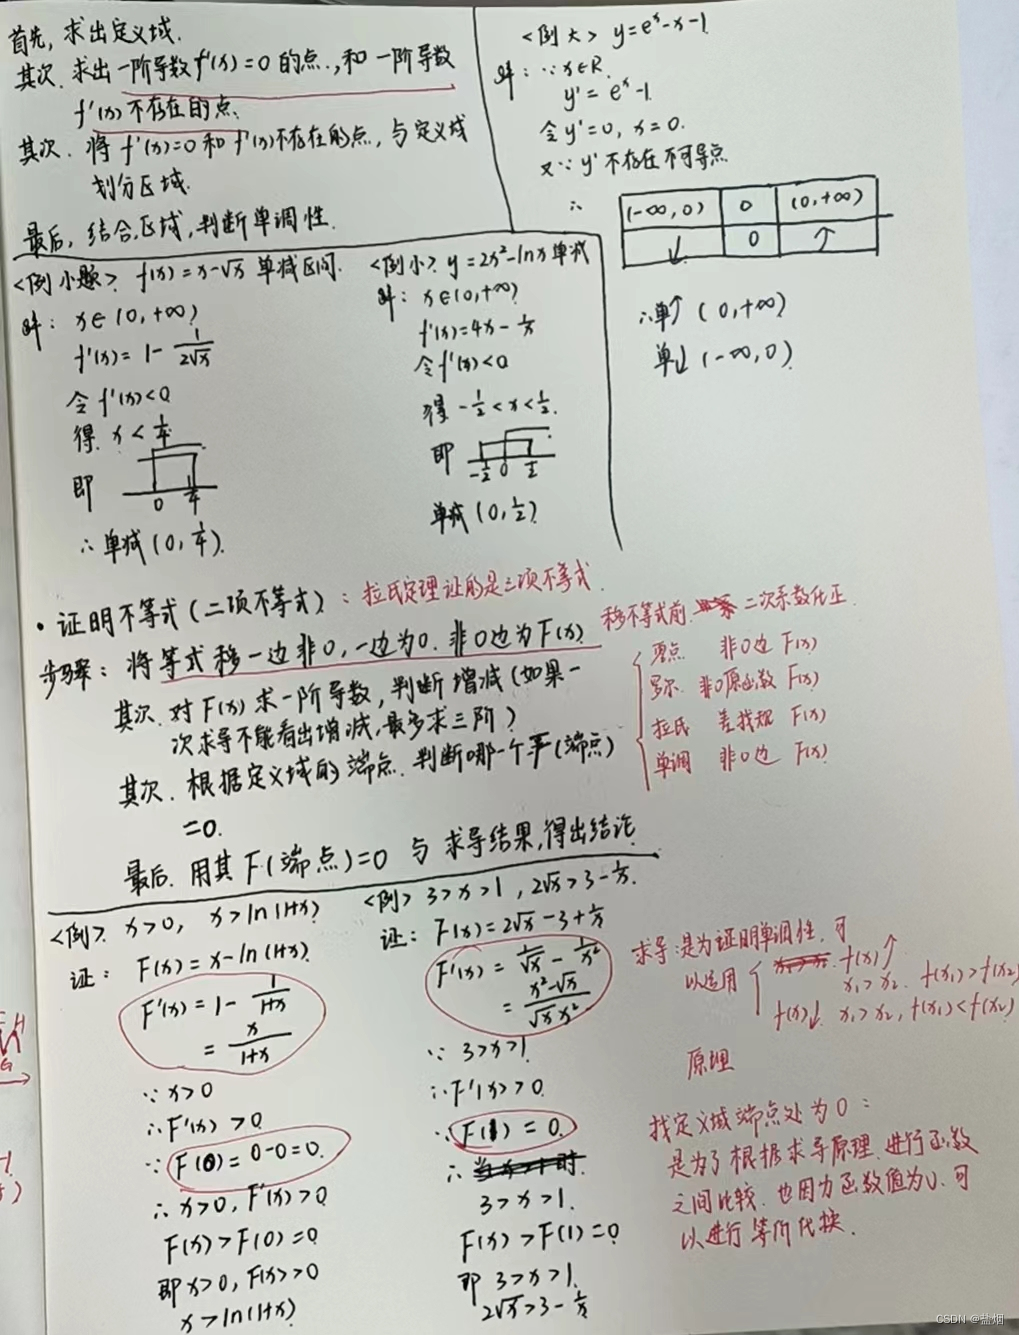 首先,求出定义域.
其次.求出一阶导数f'(x)=0的点.,和一阶导数
f'(x)不存在的点.
其次.将f'(x)=0和f'(x)不存在的点,与定义域
划分区域.
最后,结合区域,判断单调性.
<例大> y=e^x-x-1.
解:∵x∈R.
y'=e^x-1.
令y'=0,x=0.
又∵y'不存在不可导点.
∴
(-∞,0) 0 (0,+∞)
↓ 0 ↑
∴单↑(0,+∞)
单↓(-∞,0).
<例小题>. f(x)=x-√x 单减区间.
解: x∈(0,+∞)
f'(x)=1-1/(2√x)
令f'(x)<0
得. x<1/4
即
0 1/4
∴单减(0,1/4).
<例小>. y=2x²-lnx单减
解: x∈(0,+∞)
f'(x)=4x-1/x
令f'(x)<0
得 -1/2<x<1/2.
即
-1/2 0 1/2
单减(0,1/2).
·证明不等式(二项不等式):拉氏定理证的是三项不等式.
步骤:将等式移一边非0,一边为0.非0边为F(x)
其次.对F(x)求一阶导数,判断增减(如果一
次求导不能看出增减,最多求三阶)
其次.根据定义域的端点.判断哪一个F(端点)
=0.
最后.用其F(端点)=0 与求导结果,得出结论.
移不等式前. 二次系数化正.
零点 非0边 F(x)
罗尔 非0原函数 F(x)
拉氏 差找规 F(x)
单调 非0边 F(x)
<例>. x>0, x>ln(1+x)
证: F(x)=x-ln(1+x)
F'(x)=1-1/(1+x)
=x/(1+x)
∵x>0
∴F'(x)>0
∵F(0)=0-0=0.
∴x>0,F'(x)>0
F(x)>F(0)=0
即x>0,F(x)>0
x>ln(1+x)
<例> 3>x>1,2√x>3-1/x.
证: F(x)=2√x-3+1/x
F'(x)=1/√x-1/x²
=(x²-√x)/(√x x²)
∵ 3>x>1
∴F'(x)>0
∵F(1)=0.
∴
3>x>1.
F(x)>F(1)=0
即 3>x>1.
2√x>3-1/x
求导:是为证明单调性,可
以运用
f(x)↑
x₁>x₂. f(x₁)>f(x₂)
f(x)↓ x₁>x₂,f(x₁)<f(x₂)
原理
找定义域端点处为0:
是为了根据求导原理.进行函数
之间比较.也因为函数值为0.可
以进行等价代换.
CSDN @盐烟